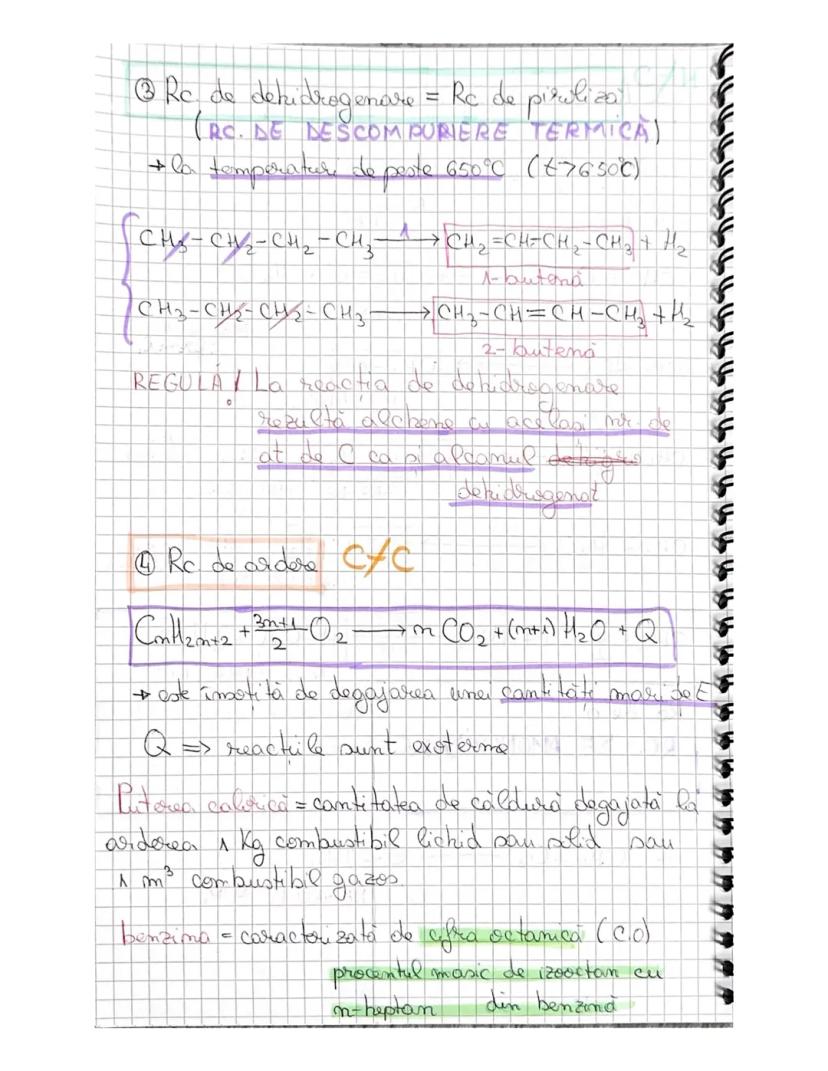 ③ Rc. de dehidrogenare = Rc de piroliză
(RC. DE DESCOMPUNERE TERMICĂ)
→ la temperaturi de peste 650°C (t>650°C)
CH3-CH2-CH2-CH3 →Δ CH2=CH-CH2-CH3 + H2
1-butenă
CH3-CH2-CH2-CH3 → CH3-CH=CH-CH3 + H2
2-butenă
REGULĂ! La reacția de dehidrogenare
rezultă alchene cu același nr. de
at de C ca și alcanul
dehidrogenat
④ Rc. de ardere C/C
CnH2n+2 + 3n+1/2 O2 → n CO2 + (n+1) H2O + Q
→ este însoțită de degajarea unei cantități mari de E
Q => reacțiile sunt exoterme
Puterea calorică = cantitatea de căldură degajată la
arderea 1 Kg combustibil lichid sau solid sau
1 m³ combustibil gazos.
benzina = caracterizată de cifra octanică (C.O)
procentul masic de izooctan cu
n-heptan din benzină